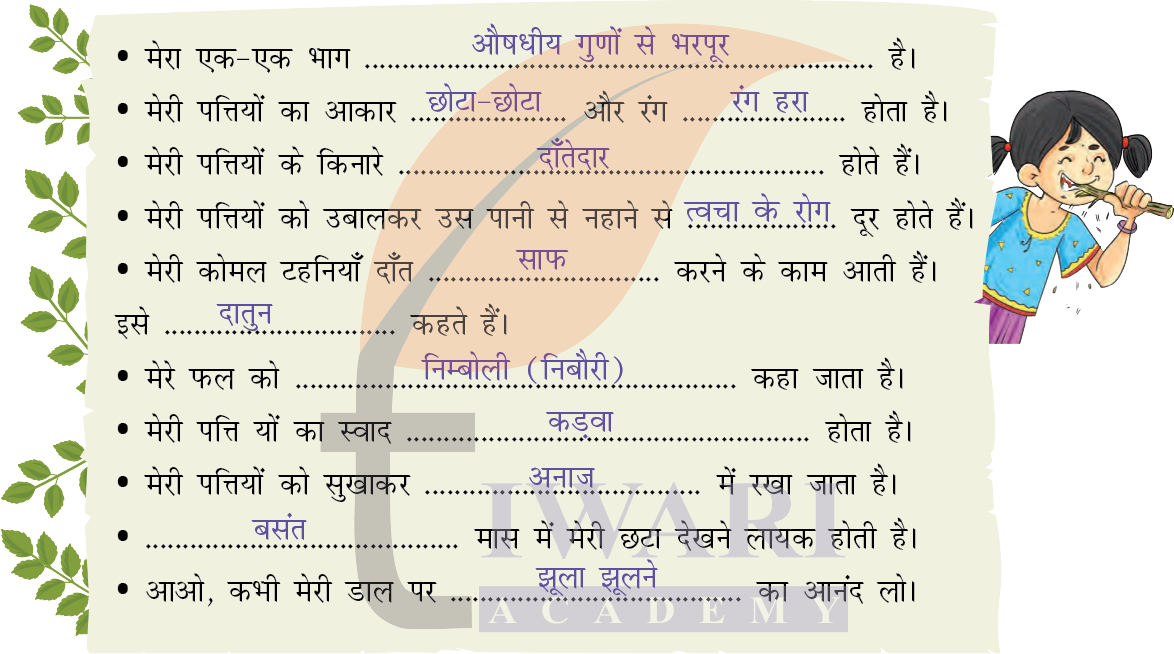 • मेरा एक-एक भाग ........ औषधीय गुणों से भरपूर ........ है।
• मेरी पत्तियों का आकार ........ छोटा-छोटा ........ और रंग ........ रंग हरा ........ होता है।
• मेरी पत्तियों के किनारे ........ दाँतेदार ........ होते हैं।
• मेरी पत्तियों को उबालकर उस पानी से नहाने से त्वचा के रोग दूर होते हैं।
• मेरी कोमल टहनियाँ दाँत ........ साफ ........ करने के काम आती हैं।
इसे ........ दातुन ........ कहते हैं।
• मेरे फल को ........ निम्बोली (निबौरी) ........ कहा जाता है।
• मेरी पत्ति यों का स्वाद ........ कड़वा ........ होता है।
• मेरी पत्तियों को सुखाकर ........ अनाज ........ में रखा जाता है।
• ........ बसंत ........ मास में मेरी छटा देखने लायक होती है।
• आओ, कभी मेरी डाल पर ........ झूला झूलने ........ का आनंद लो।
TIWARI
ACADEMY